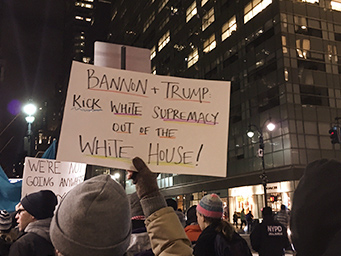 BANNON + TRUMP:
KICK WHITE SUPREMACY
OUT OF THE
WHITE HOUSE!
WE'RE NOT
GOING ANYWH
NYPD